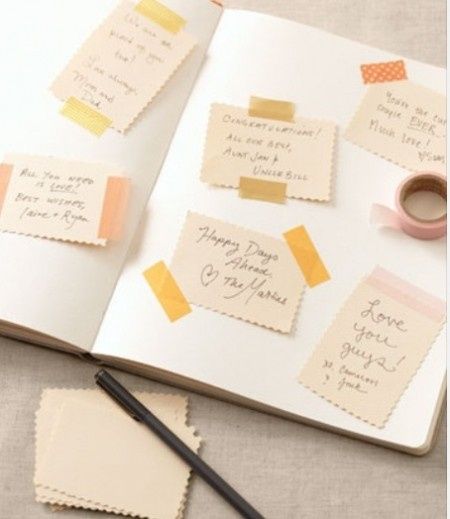 We are so
proud of you
two!
Love always,
Mom and
Dad
All you need
is love!
Best wishes,
Laine + Ryan
Congratulations!
All our best,
Aunt Jan &
Uncle Bill
Happy Days
Ahead.
♡ The Markles
You're the cutest
couple EVER.
Much love!
Love
you
guys!
xo, Cameron
& Jack